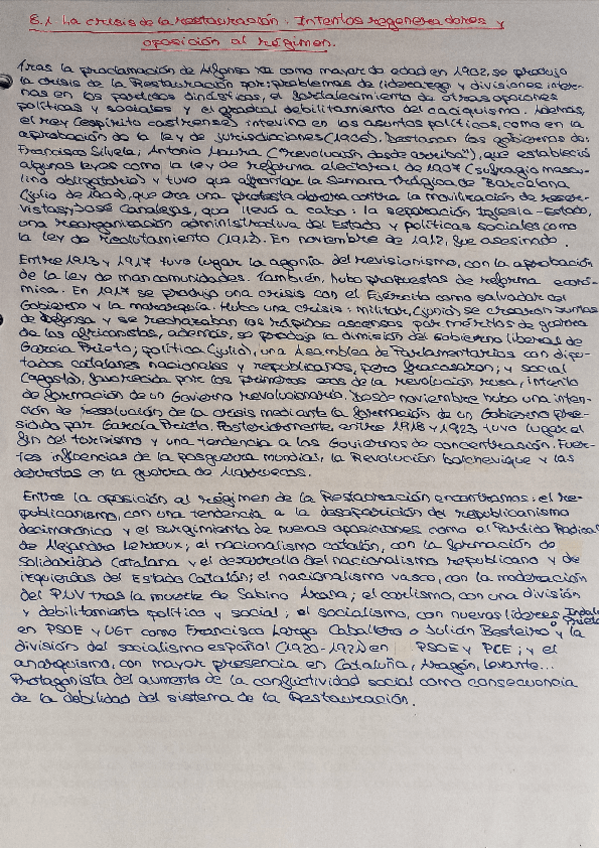 8.1 La crisis de la restauración: Intentos regeneradores y
oposición al régimen.
Tras la proclamación de Alfonso XIII como mayor de edad en 1902, se produjo
la crisis de la Restauración por: problemas de liderazgo y divisiones inter-
nas en los partidos dinásticos, el fortalecimiento de otras opciones
políticas y sociales y el gradual debilitamiento del caciquismo. Además,
el rey (espíritu castrense) intervino en los asuntos políticos, como en la
aprobación de la ley de jurisdicciones (1906). Destacan los gobiernos de:
Francisco Silvela, Antonio Maura ("revolución desde arriba"), que estableció
algunas leyes como la ley de reforma electoral de 1907 (sufragio mascu-
lino obligatorio) y tuvo que afrontar la Semana Trágica de Barcelona
(julio de 1909), que era una protesta obrera contra la movilización de reser-
vistas; José Canalejas, que llevó a cabo: la separación Iglesia-Estado,
una reorganización administrativa del Estado y políticas sociales como
la ley de Reclutamiento (1912). En noviembre de 1912, fue asesinado.
Entre 1913 y 1917 tuvo lugar la agonía del revisionismo, con la aprobación
de la ley de mancomunidades. También, hubo propuestas de reforma econó-
mica. En 1917 se produjo una crisis con el Ejército como salvador del
Gobierno y la monarquía. Hubo una crisis: militar, (junio) se crearon Juntas
de Defensa y se rechazaban los rápidos ascensos por méritos de guerra
de los africanistas, además, se produjo la dimisión del gobierno liberal de
García Prieto; política (julio), una Asamblea de Parlamentarios con dipu-
tados catalanes nacionales y republicanos, pero fracasaron; y social
(agosto), favorecida por los primeros ecos de la revolución rusa, intento
de formación de un Govierno revolucionario. Desde noviembre hubo una inten-
ción de resolución de la crisis mediante la formación de un Gobierno pre-
sidido por García Prieto. Posteriormente, entre 1918 y 1923 tuvo lugar el
fin del turnismo y una tendencia a los Goviernos de concentración. Fuer-
tes influencias de la posguerra mundial, la Revolución bolchevique y las
derrotas en la guerra de Marruecos.
Entre la oposición al régimen de la Restauración encontramos: el re-
publicanismo, con una tendencia a la desaparición del republicanismo
decimonónico y el surgimiento de nuevas oposiciones como el Partido Radical
de Alejandro Lerroux; el nacionalismo catalán, con la formación de
Solidaridad Catalana y el desarrollo del nacionalismo republicano y de
izquierdas del Estado Catalán; el nacionalismo vasco, con la moderación
del PNV tras la muerte de Sabino Arana; el carlismo, con una división
y debilitamiento político y social; el socialismo, con nuevos líderes Indalecio Prieto
en PSOE y UGT como Francisco Largo Caballero o Julián Besteiro y la
división del socialismo español (1920-1921) en PSOE y PCE; y el
anarquismo, con mayor presencia en Cataluña, Aragón, Levante...
Protagonista del aumento de la conflictividad social como consecuencia
de la debilidad del sistema de la Restauración.